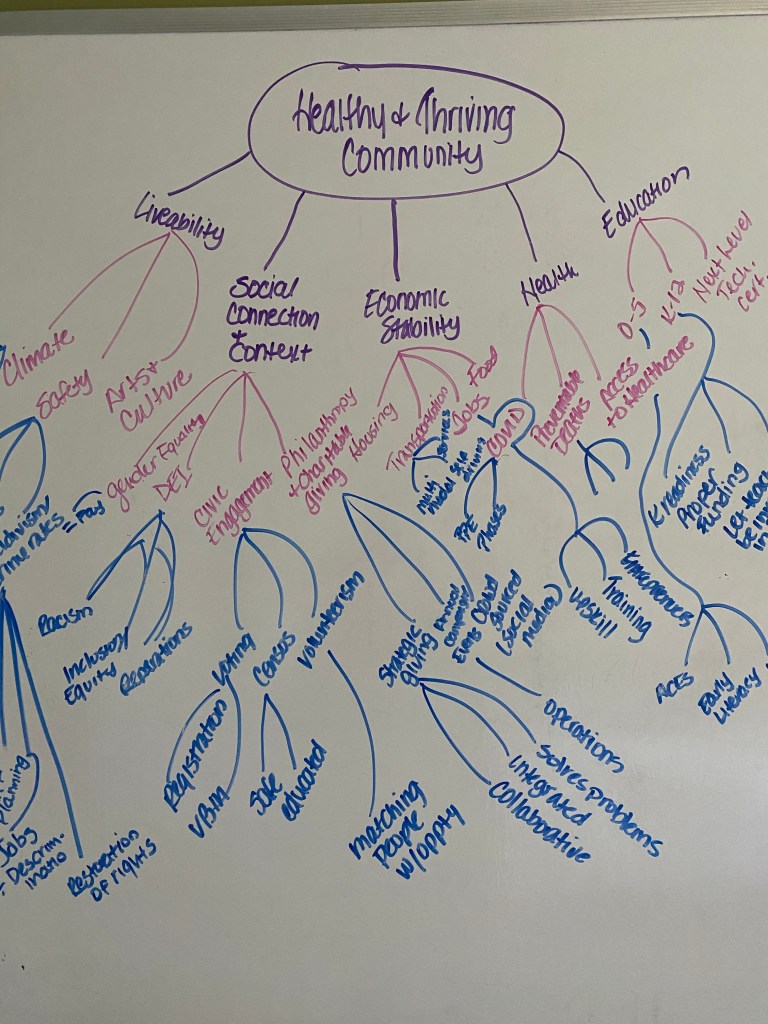 Healthy & Thriving
Community
Liveability
Climate
Safety
Arts +
Culture
Social
Connection
+
Context
Gender Equality
DEI
Racism
Inclusion/
Equity
Reparations
Civic
Engagement
Voting
Registration
VBM
Census
Safe
educated
Volunteerism
matching
People
w/oppty
Philanthropy
+ Charitable
Giving
Strategic
giving
operations
solves problems
integrated
collaborative
Events
(social
media)
Economic
Stability
Housing
Transportation
multi
modal
services
self
driving
Jobs
upskill
Training
Entrepreneurs
Food
Health
COVID
PPE
Phases
Preventable
Deaths
Access
to Healthcare
Education
0-5
ACES
Early
Literacy
K-12
K readiness
Proper
Funding
Let teach
Next Level
Tech.
Cert.
Planning
Jobs
- Descrim-
inatio
Restoration
of rights